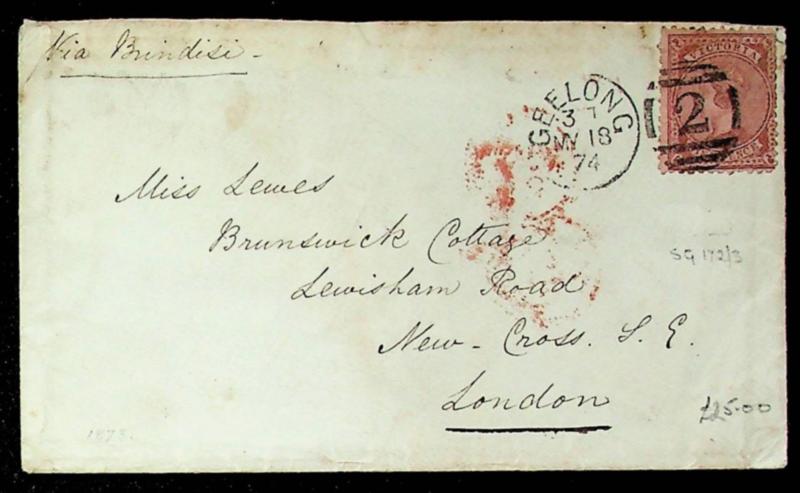 Via Brindisi -
VICTORIA
GEELONG
3
18
74
2
Miss Lewes
Brunswick Cottage
Lewisham Road
New-Cross. S. E.
London
SG 172/3
£25.00
1873.